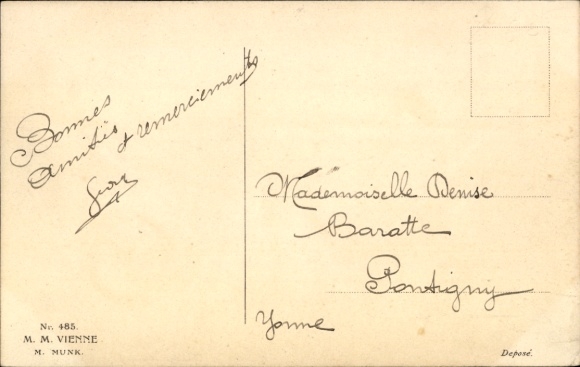 Bonnes
amitiés & remerciements
Mademoiselle Denise
Baratte
Pontigny
Yonne
Nr. 485.
M. M. VIENNE
M. MUNK.
Deposé.